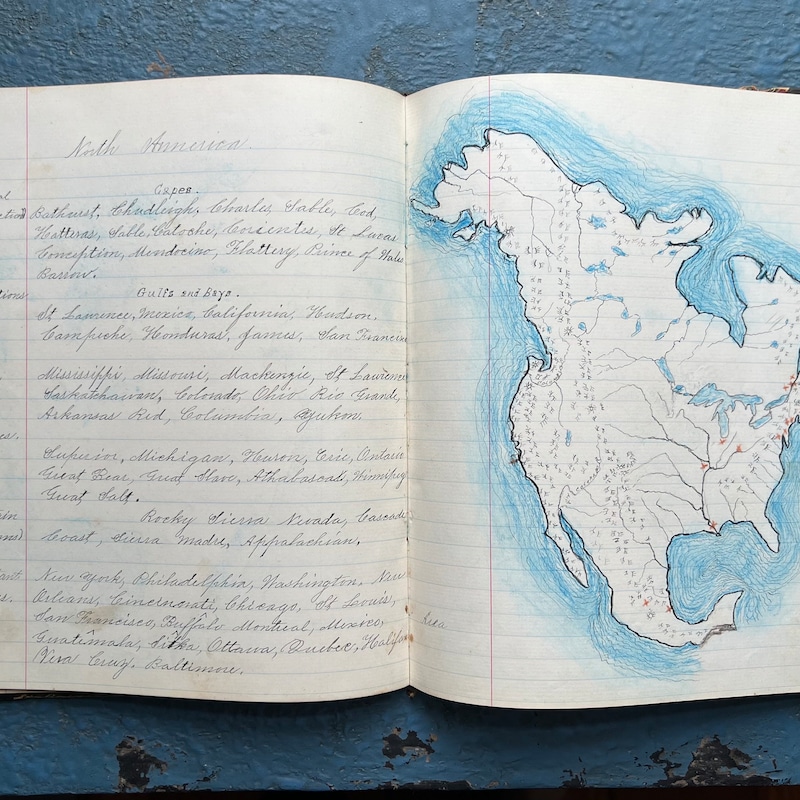 North America.
Capes.
Bathurst, Chudleigh, Charles, Sable, Cod,
Hatteras, Sable, Catoche, Corientes, St Lucas
Conception, Mendocino, Flattery, Prince of Wales
Barrow.
Gulfs and Bays.
St Lawrence, Mexico, California, Hudson,
Campeche, Honduras, James, San Francisco
Mississippi, Missouri, Mackenzie, St Lawrence
Saskatchawan, Colorado, Ohio Rio Grande,
Arkansas Red, Columbia, Yukon.
Superior, Michigan, Huron, Erie, Ontario
Great Bear, Great Slave, Athabascat, Winnipeg
Great Salt.
Rocky Sierra Nevada, Cascade
Coast, Sierra Madre, Appalachian.
New York, Philadelphia, Washington, New
Orleans, Cincinnati, Chicago, St Louis,
San Francisco, Buffalo Montreal, Mexico,
Guatemala, Sitka, Ottawa, Quebec, Halifax
Vera Cruz. Baltimore.